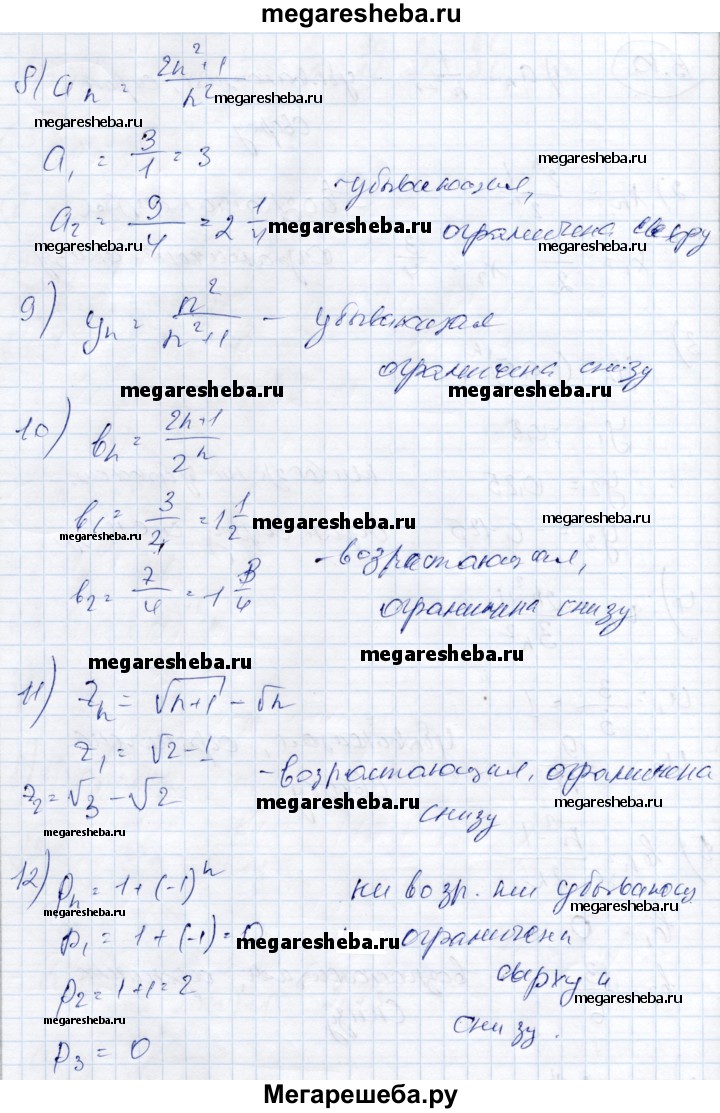 megaresheba.ru
8) aₙ = (2n²+1)/n²
megaresheba.ru
megaresheba.ru
a₁ = 3/1 = 3
megaresheba.ru
- убывающая,
a₂ = 9/4 = 2 1/4
ограничена сверху
megaresheba.ru
megaresheba.ru
megaresheba.ru
9) yₙ = n²/(n²+1) - убывающая
ограничена снизу
megaresheba.ru
megaresheba.ru
10) bₙ = (2n+1)/2ⁿ
b₁ = 3/2 = 1 1/2
megaresheba.ru
megaresheba.ru
megaresheba.ru
- возрастающая,
b₂ = 7/4 = 1 3/4
ограничена снизу
megaresheba.ru
megaresheba.ru
11) zₙ = √(n+1) - √n
z₁ = √2 - 1
- возрастающая, ограничена
z₂ = √3 - √2
снизу
megaresheba.ru
megaresheba.ru
megaresheba.ru
12) pₙ = 1 + (-1)ⁿ
ни возр. ни убывающ
megaresheba.ru
megaresheba.ru
p₁ = 1 + (-1) = 0
ограничена
megaresheba.ru
сверху и
p₂ = 1+1 = 2
megaresheba.ru
megaresheba.ru
снизу.
p₃ = 0
Мегарешеба.ру